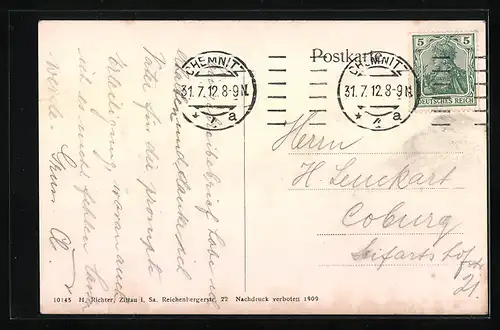 Postkarte
CHEMNITZ
31.7.12.8-9N.
* a
CHEMNITZ
31.7.12.8-9N.
* a
5 5
DEUTSCHES REICH
Herrn
H. Leuckart
Coburg
Seifartshofstr
21
erhalten und danke
Vater für die prompte
Erledigung, woran auch
nie es sonst fehlen kann
werde. Gruss
10145 H. Richter, Zittau i. Sa. Reichenbergerstr. 22 Nachdruck verboten 1909